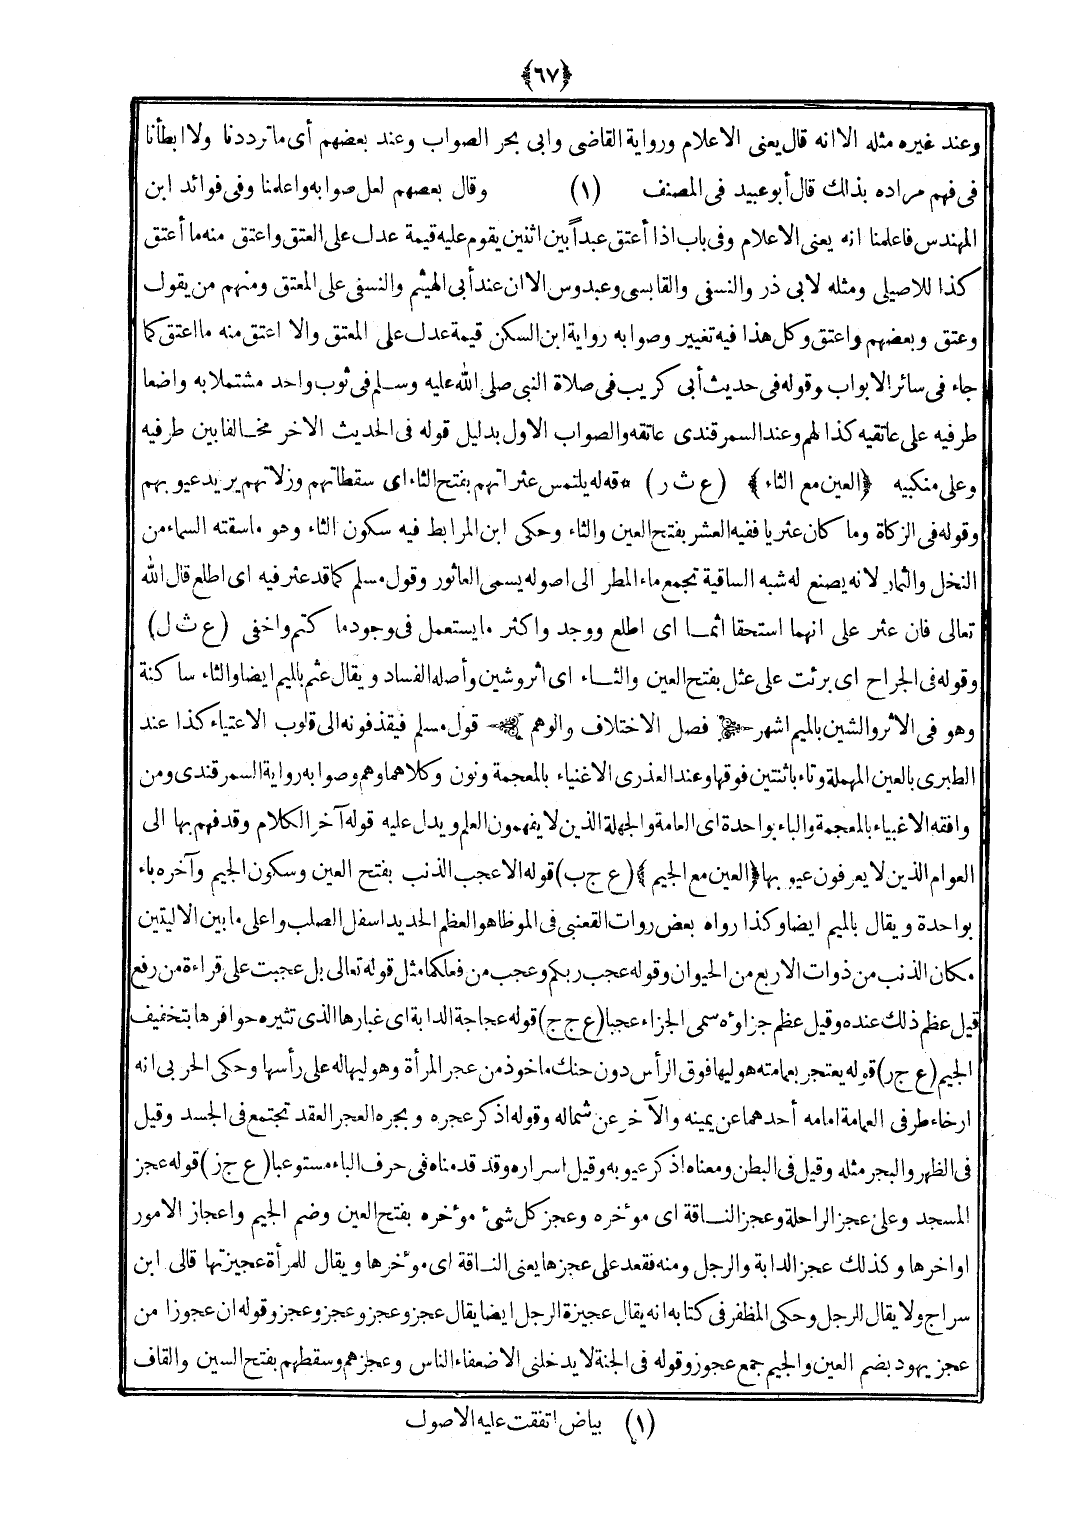 ﴿٦٧﴾
وعند غيره مثله الا انه قال يعنى الاعلام ورواية القاضى وابى بحر الصواب وعند بعضهم أى ما ترددنا ولا ابطأنا
فى فهم مراده بذلك قال أبو عبيد فى المصنف (١) وقال بعضهم لعل صوابه واعلمنا وفى فوائد ابن
المهندس فاعلمنا انه يعنى الاعلام وفى باب اذا أعتق عبداً بين اثنين يقوم عليه قيمة عدل على العتق واعتق منه ما أعتق
كذا للاصيلى ومثله لابى ذر والنسفى والقابسى وعبدوس الا ان عند أبى الهيثم والنسفى على المعتق ومنهم من يقول
وعتق وبعضهم واعتق وكل هذا فيه تغيير وصوابه رواية ابن السكن قيمة عدل على المعتق والا اعتق منه ما اعتق كما
جاء فى سائر الابواب وقوله فى حديث أبى كريب فى صلاة النبى صلى الله عليه وسلم فى ثوب واحد مشتملا به واضعا
طرفيه على عاتقيه كذا لهم وعند السمرقندى عاتقه والصواب الاول بدليل قوله فى الحديث الاخر مخالفا بين طرفيه
وعلى منكبيه ﴿العين مع الثاء﴾ (ع ث ر) * قوله يلتمس عثراتهم بفتح الثاء اى سقطاتهم وزلاتهم يريد عيوبهم
وقوله فى الزكاة وما كان عثريا ففيه العشر بفتح العين والثاء وحكى ابن المرابط فيه سكون الثاء وهو ما سقته السماء من
النخل والثمار لانه يصنع له شبه الساقية تجمع ماء المطر الى اصوله يسمى العاثور وقول مسلم كما قد عثر فيه اى اطلع قال الله
تعالى فان عثر على انهما استحقا اثما اى اطلع ووجد واكثر ما يستعمل فى وجود ما كتم واخفى (ع ث ل)
وقوله فى الجراح اى برئت على عثل بفتح العين والثاء اى اثر وشين وأصله الفساد ويقال عثم بالميم ايضا والثاء ساكنة
وهو فى الاثر والشين بالميم اشهر فصل الاختلاف والوهم قول مسلم فيقذفونه الى قلوب الاعتياء كذا عند
الطبرى بالعين المهملة وتاء باثنتين فوقها وعند العذرى الاغنياء بالمعجمة ونون وكلاهما وهم وصوابه رواية السمرقندى ومن
وافقه الاغبياء بالمعجمة والباء بواحدة اى العامة والجهلة الذين لا يفهمون العلم ويدل عليه قوله آخر الكلام وقد فهم بها الى
العوام الذين لا يعرفون عيوبها ﴿العين مع الجيم﴾ (ع ج ب) قوله الا عجب الذنب بفتح العين وسكون الجيم وآخره باء
بواحدة ويقال بالميم ايضا وكذا رواه بعض روات القعنبى فى الموطا هو العظم الحديد اسفل الصلب واعلى ما بين الاليتين
مكان الذنب من ذوات الاربع من الحيوان وقوله عجب ربكم وعجب من فعلكما مثل قوله تعالى بل عجبت على قراءة من رفع
قيل عظم ذلك عنده وقيل عظم جزاوه سمى الجزاء عجبا (ع ج ج) قوله عجاجة الدابة اى غبارها الذى تثيره حوافرها بتخفيف
الجيم (ع ج ر) قوله يعتجر بعمامته هو ليها فوق الرأس دون حنك ماخوذ من عجر المرأة وهو ليها له على رأسها وحكى الحربى انه
ارخاء طرفى العمامة امامه أحدهما عن يمينه والآخر عن شماله وقوله اذكر عجره وبجره العجر العقد تجتمع فى الجسد وقيل
فى الظهر والبجر مثله وقيل فى البطن ومعناه اذكر عيوبه وقيل اسراره وقد قدمناه فى حرف الباء مستوعبا (ع ج ز) قوله عجز
المسجد وعلى عجز الراحلة وعجز الناقة اى موءخره وعجز كل شىء موءخره بفتح العين وضم الجيم واعجاز الامور
اواخرها وكذلك عجز الدابة والرجل ومنه فقعد على عجزها يعنى الناقة اى موءخرها ويقال للمرأة عجيزتها قالى ابن
سراج ولا يقال الرجل وحكى المظفر فى كتابه انه يقال عجيزة الرجل ايضا يقال عجز وعجز وعجز وعجز وقوله ان عجوزا من
عجز يهود بضم العين والجيم جمع عجوز وقوله فى الجنة لا يدخلنى الا ضعفاء الناس وعجزهم وسقطهم بفتح السين والقاف
(١) بياض اتفقت عليه الاصول